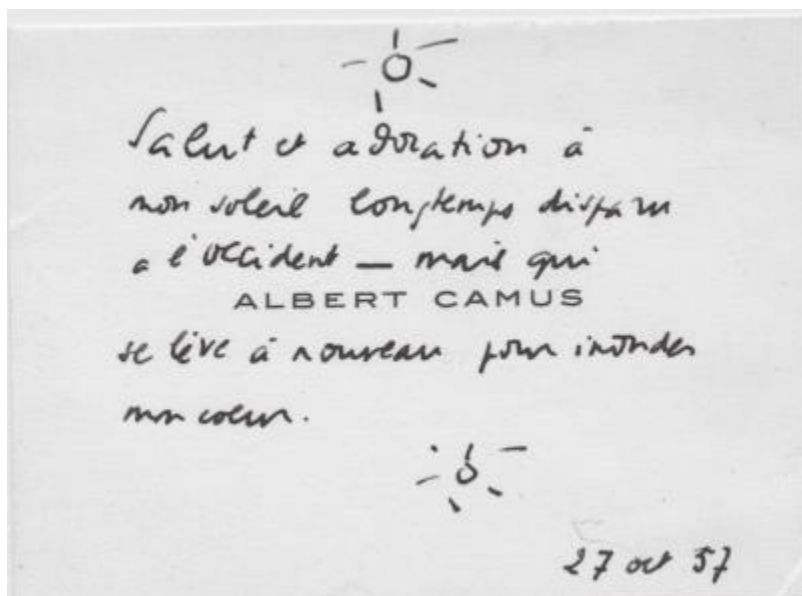 Salut et adoration à
mon soleil longtemps disparu
a l'occident — mais qui
ALBERT CAMUS
se lève à nouveau pour inonder
mon coeur.
27 oct 57